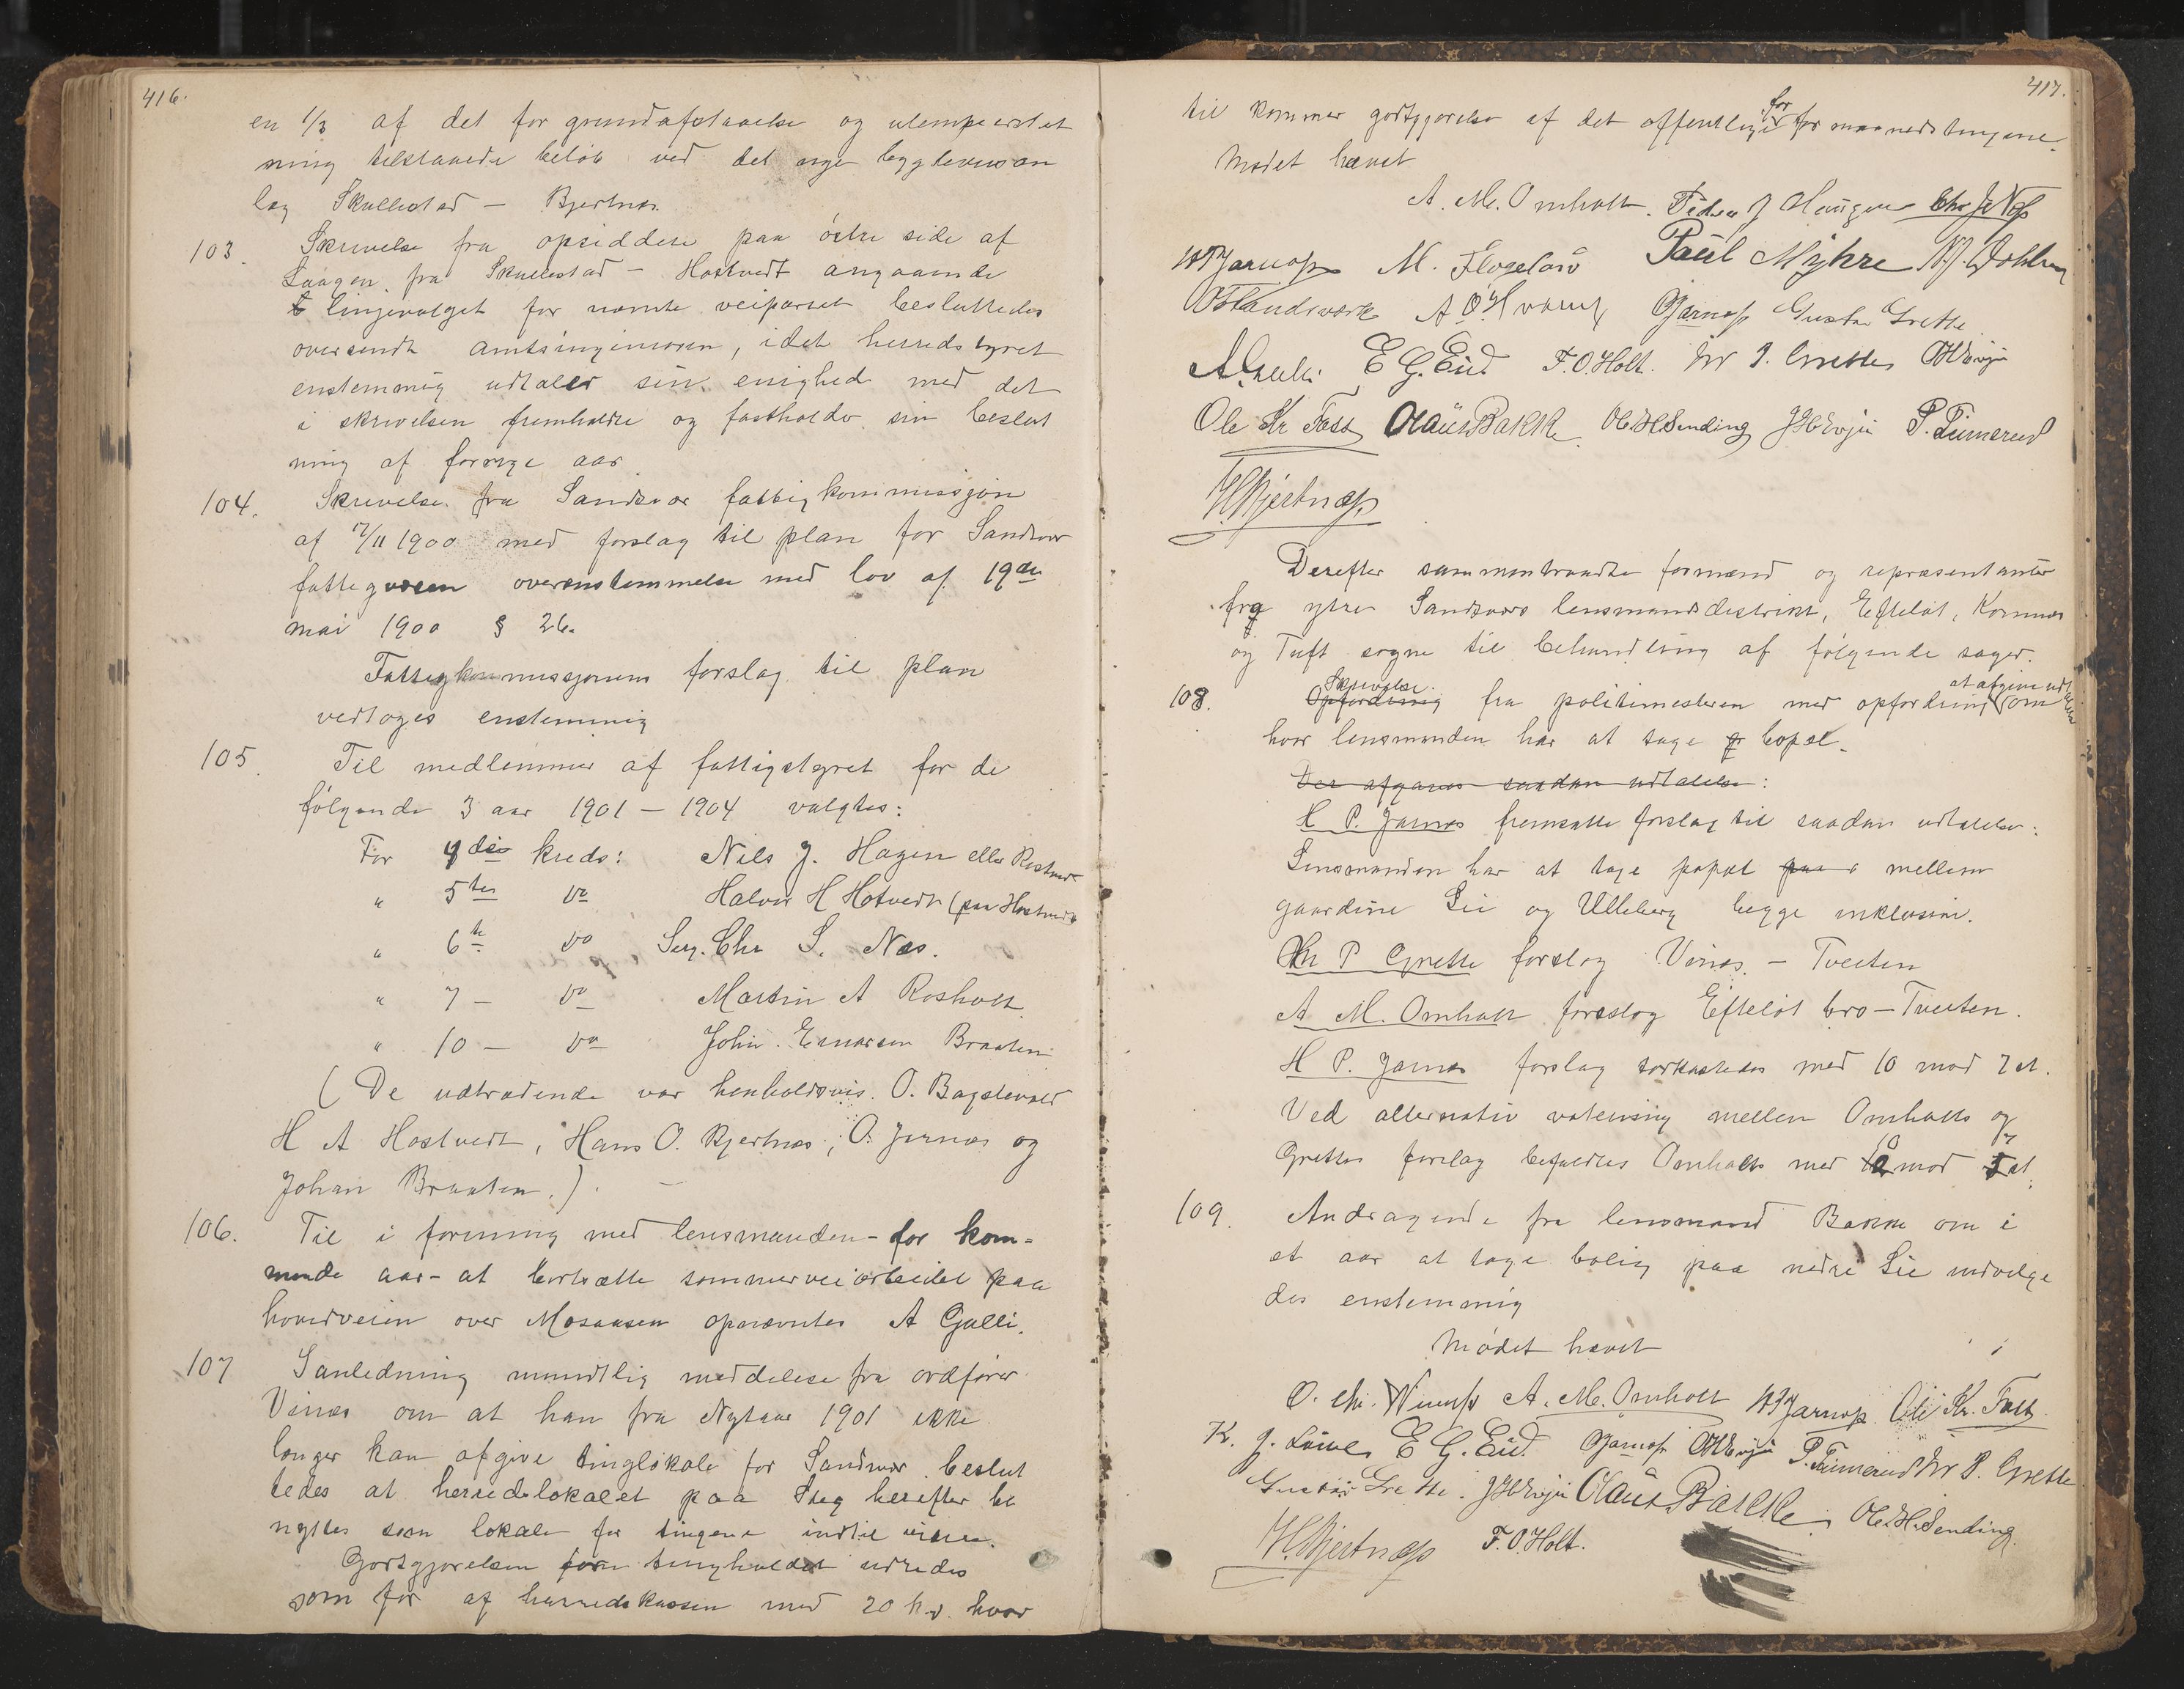 416.
en 1/3 af det for grundafstaaelse og ulempeerstat
ning tilstaaede beløb ved det nye veg
læg Skollestad — Bjertnæs.
103. Skrivelse fra opsiddere paa östre side af
Laagen fra Skullestad — Hostvedt angaaende
linjevalget for nævnte veiparcel besluttedes
oversendt amtsingeniøren, idet herredstyret
enstemmig udtaler sin enighed med det
i skrivelsen fremholdte og fastholder sin beslut
ning af forrige aar
104. Skrivelse fra Sandsvær fattigkommissjon
af 17/11 1900 med forslag til plan for Sandsvær
fattigvæsen overenstemmelse med lov af 19de
mai 1900 § 26.
Fattigkommissjonens forslag til plan
vedtoges enstemmig
105. Til medlemmer af fattigstyret for de
følgende 3 aar 1901 — 1904 valgtes:
For 4de kreds: Nils J. Hagen eller Rostvedt
" 5te do Halvor H Hotvedt (paa Hostvedt
" 6te do Chr S. Næs.
" 7 — do Martin A Rosholt
" 10 — do John Braaten
(De udtrædende var henholdsvis O. Bagstevold
H A Hostvedt, Hans O. Bjertnæs, O. Jernæs og
Johan Braaten.) —
106. Til i forening med lensmanden - for kom-
mende aar - at bortsætte sommerveiarbeidet paa
hovedveien over Moaasen opnævntes A Gulli.
107 I anledning mundtlig meddelese fra ordfører
Vinæs om at han fra Nytaar 1901 ikke
længer kan afgive tinglokale for Sandsvær beslut
tedes at herredslokalet paa Steg herefter be
nyttes som lokale for tingene indtil videre.
Godtgjørelsen for tingholdet udredes
som før af herredskassen med 20 kr. hvor
417.
til kommer godtgjørelse af det offentlige for for maanedstingene.
Mødet hævet
A. M. Omholt. Peder J Haugen Chr J Næs
HPJarnæs M. Fløseløv Paul Myhre
A O Hvamb OJarnæs Gustav Grette
AGulli E G. Eid F. O. Holt. Hr P. Grette OHEvju
Ole Kr Fass Olaus Bakke. Ole H Sending JHEvju P. Tuinerud
HBjertnæs
Derefter sammentraadte formænd og repræsentanter
fra ytre Sandsværs lensmandsdistrikt, Efteløt, Komnæs
og Tuft sogne til behandling af følgende sager.
108. Opfordring Skrivelse fra politimesteren med opfordring at afgive udtalelse om
hvor lensmanden har at tage bopæl.
Der afgaves saadan udtalelse:
H P. Jarnæs fremsatte forslag til saadan udtalelse:
Lensmanden har at tage popæl paa mellem
gaardene Lie og Ulleberg begge inklusive.
Hr P Grette forslog Vinæs — Tveten
A M. Omholt foreslog Efteløt bro — Tveeten.
H P. Jarnæs forslag forkastedes med 10 mod 7 st.
Ved alternativ votering mellem Omholts og
Grettes forslag befaldtes Omholts med 10 mod 7 st.
109. Andragende fra lensmand Bakke om i
et aar at tage bolig paa nedre Lie indvilge
des enstemmig
Mødet hævet
O. Chr. Winæs A. M. Omholt HPJarnæs Ole Kr. Fass
K. J. E G. Eid. OJarnæs OHEvju P. Tuinerud Hr P. Grette
Gustav Grette. JHEvju Olaus Bakke. Ole H. Sending.
HBjertnæs F. O. Holt.